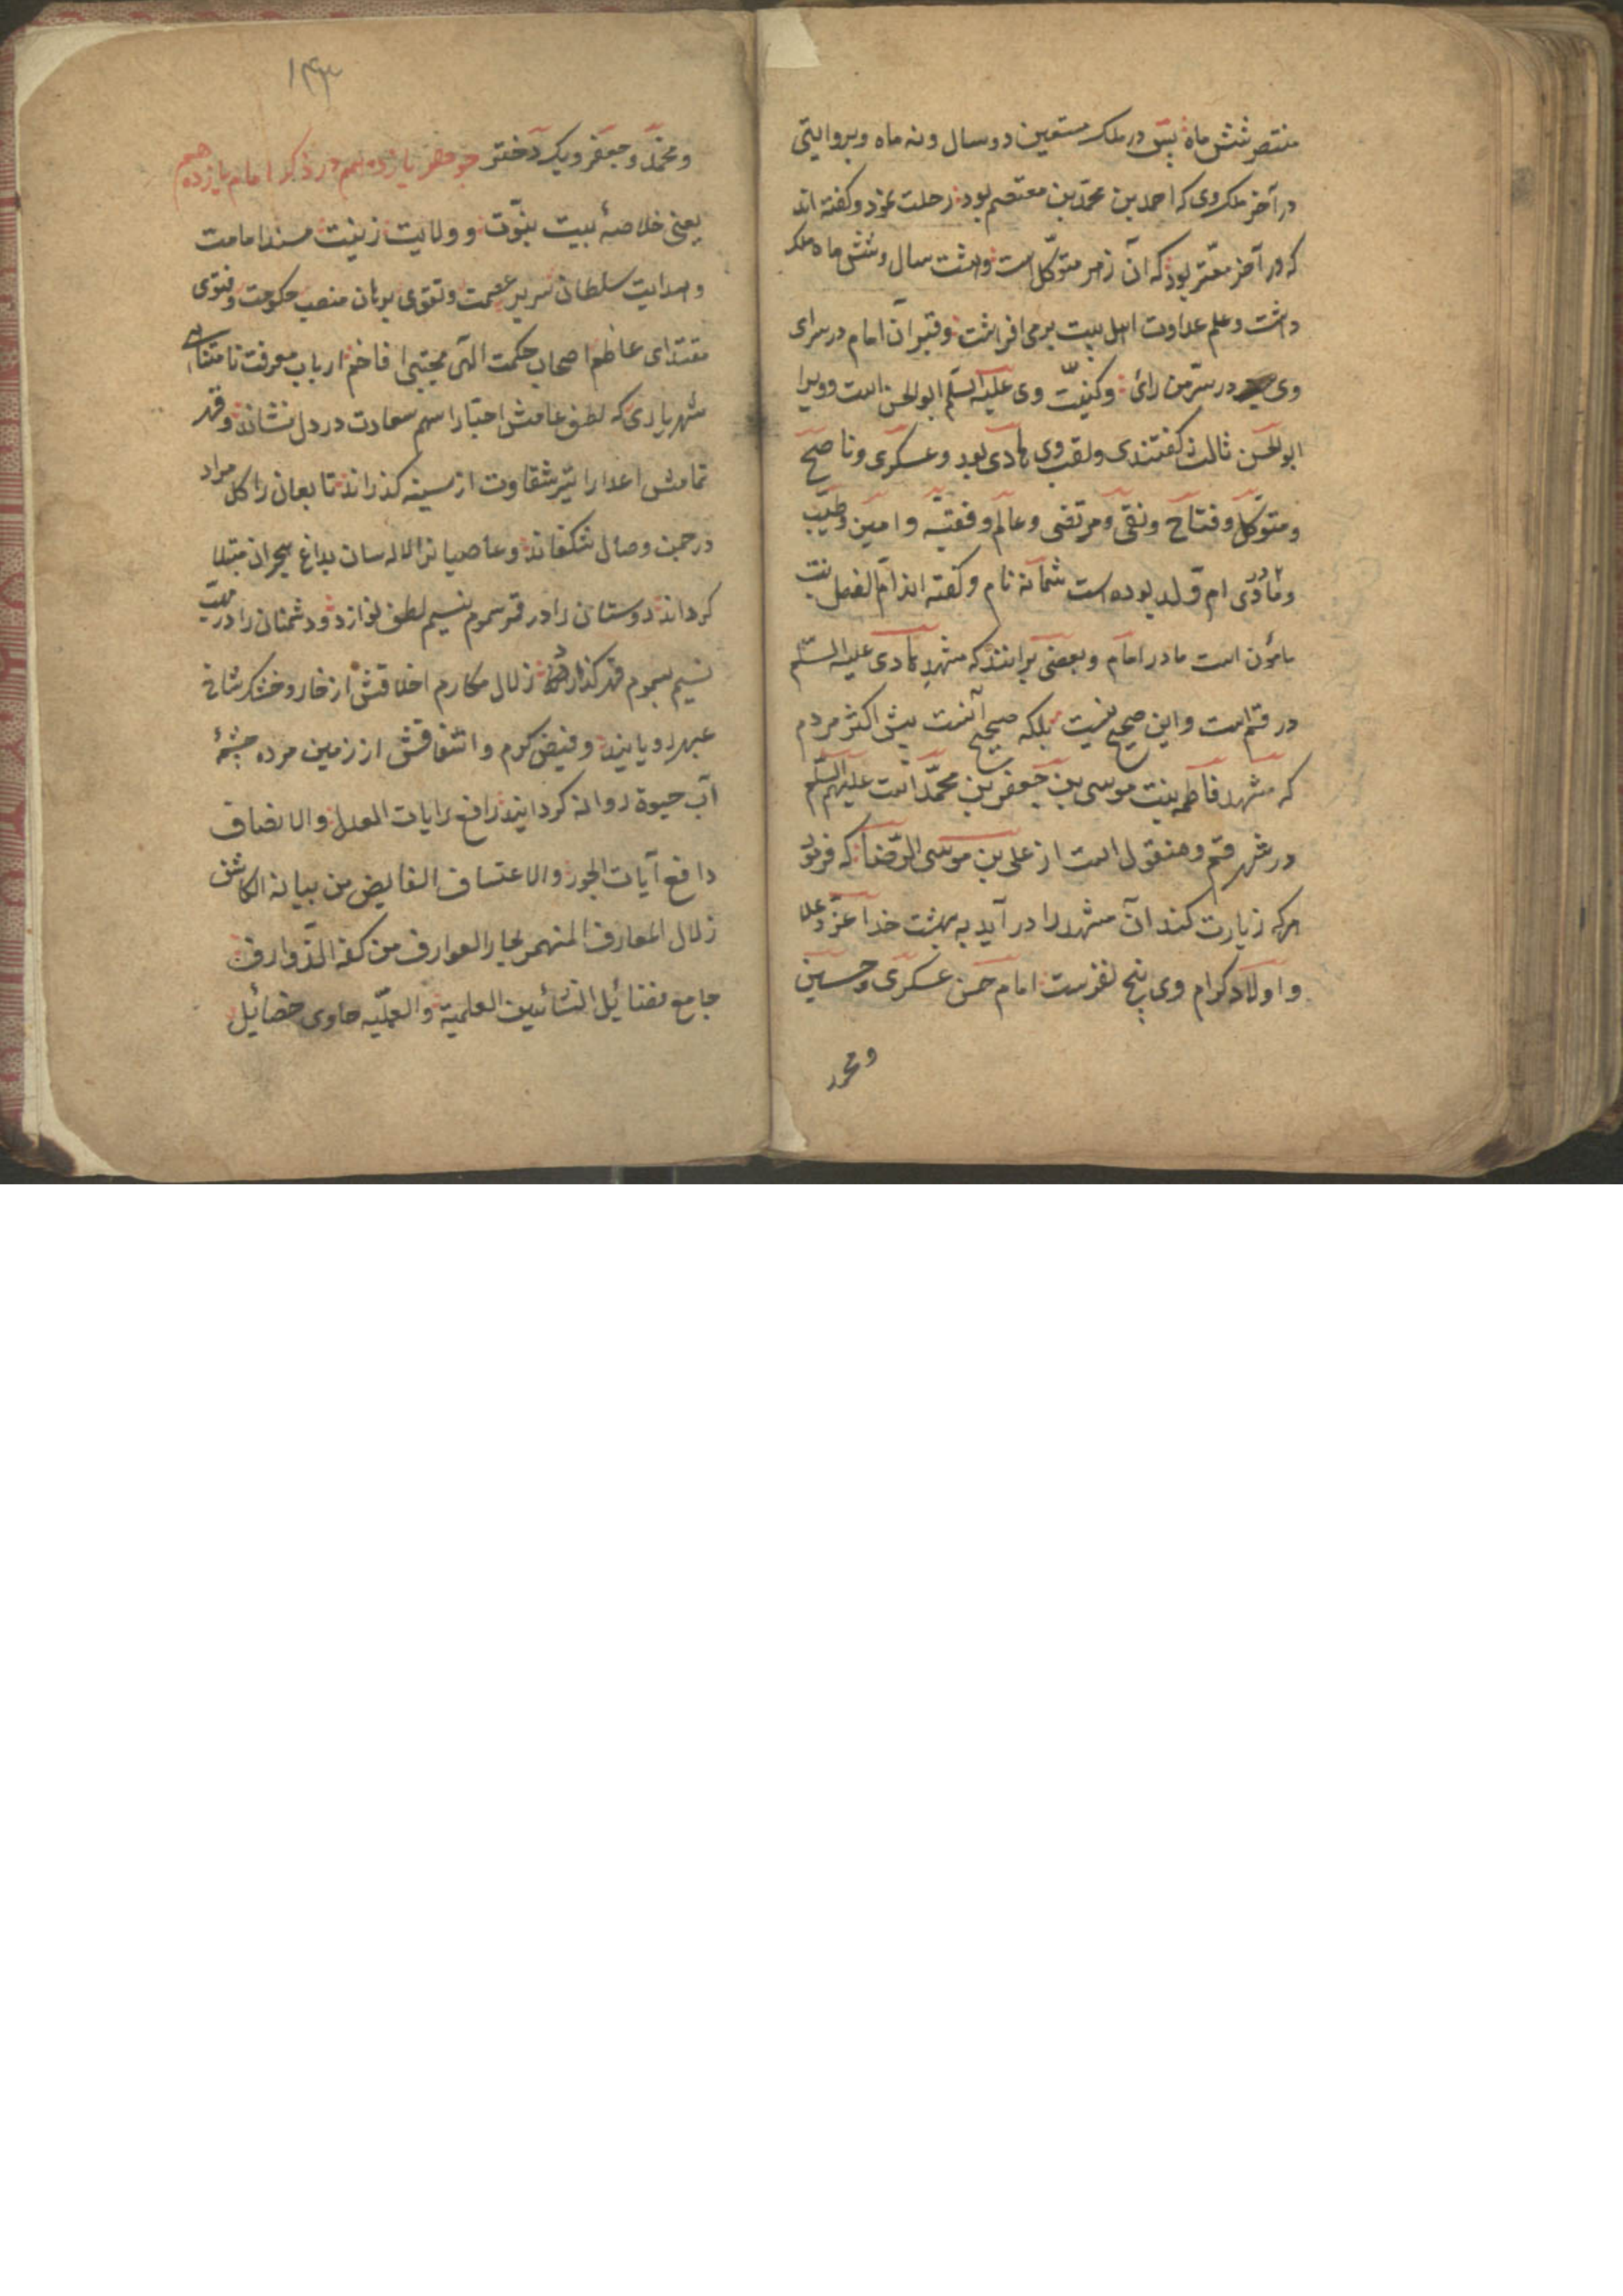 منتصر شش ماه پس در ملک مستعین دو سال و نه ماه و بروایتی
در آخر ملک وی که احمد بن محمد بن معتصم بود رحلت نمود و گفته اند
که در آخر معتز بود که آن زمر متوکل است و هشت سال و شش ماه ملک
داشت و علم عداوت اهل بیت برمی افراشت و قبر آن امام در سرای
وی در سرّ من رأی و کنیّت وی علیه السلم ابو الحسن است و ویرا
ابو الحسن ثالث گفتندی و لقب وی هادی بود و عسکری و ناصح
و متوکل و فتاح و نقی و مرتضی و عالم و فقیه و امین و طیّب
و مادر وی ام ولد بوده است شمانه نام و گفته اند ام الفضل بنت
مامون است مادر امام و بعضی برانند که مشهد هادی علیه السلم
در قم است و این صحیح نیست بلکه صحیح آنست پیش اکثر مردم
که مشهد فاطمه بنت موسی بن جعفر بن محمّد است علیهم السلم
در شهر قم و منقول است از علی بن موسی الرّضا که فرمود
هرکه زیارت کند آن مشهد را در آید به بهشت خدا عزّ و علا
و اولاد کرام وی پنج نفرست امام حسن عسکری و حسین
و محمد
۱۴۳
و محمّد و جعفر و یک دختر جوهر یازدهم در ذکر امام یازدهم
یعنی خلاصهٔ بیت نبوّت و ولایت زینت مسند امامت
و هدایت سلطان سریر عصمت و تقوی برهان منصب حکومت و فتوی
مقتدای عاظم اصحاب حکمت الهی مجتبی افاخم ارباب معرفت نامتناهی
شهریاری که لطف عامش احبا را سهم سعادت در دل نشاند و قهر
تامش اعدا را تیر شقاوت از سینه گذراند تابعان را گل مراد
در چمن وصال شکفاند و عاصیانرا لاله سان بداغ هجران مبتلا
گرداند دوستان را در قهر سموم نسیم لطف نوازد و دشمنان را در مهبّ
نسیم سموم قهر گدازد زلال مکارم اخلاقش از خار و خشک شاخ
عبهر رویانید و فیض کرم و اشفاقش از زمین مرده چشمهٔ
آب حیوة روانه گردانید رافع رایات العدل و الانصاف
دافع آیات الجور و الاعتساف الفایض من بیانه الکاشف
زلال المعارف المنهمر بحار العوارف من کفه الذّوارف
جامع فضائل النشائین العلمیة و العملیّه حاوی خصائل